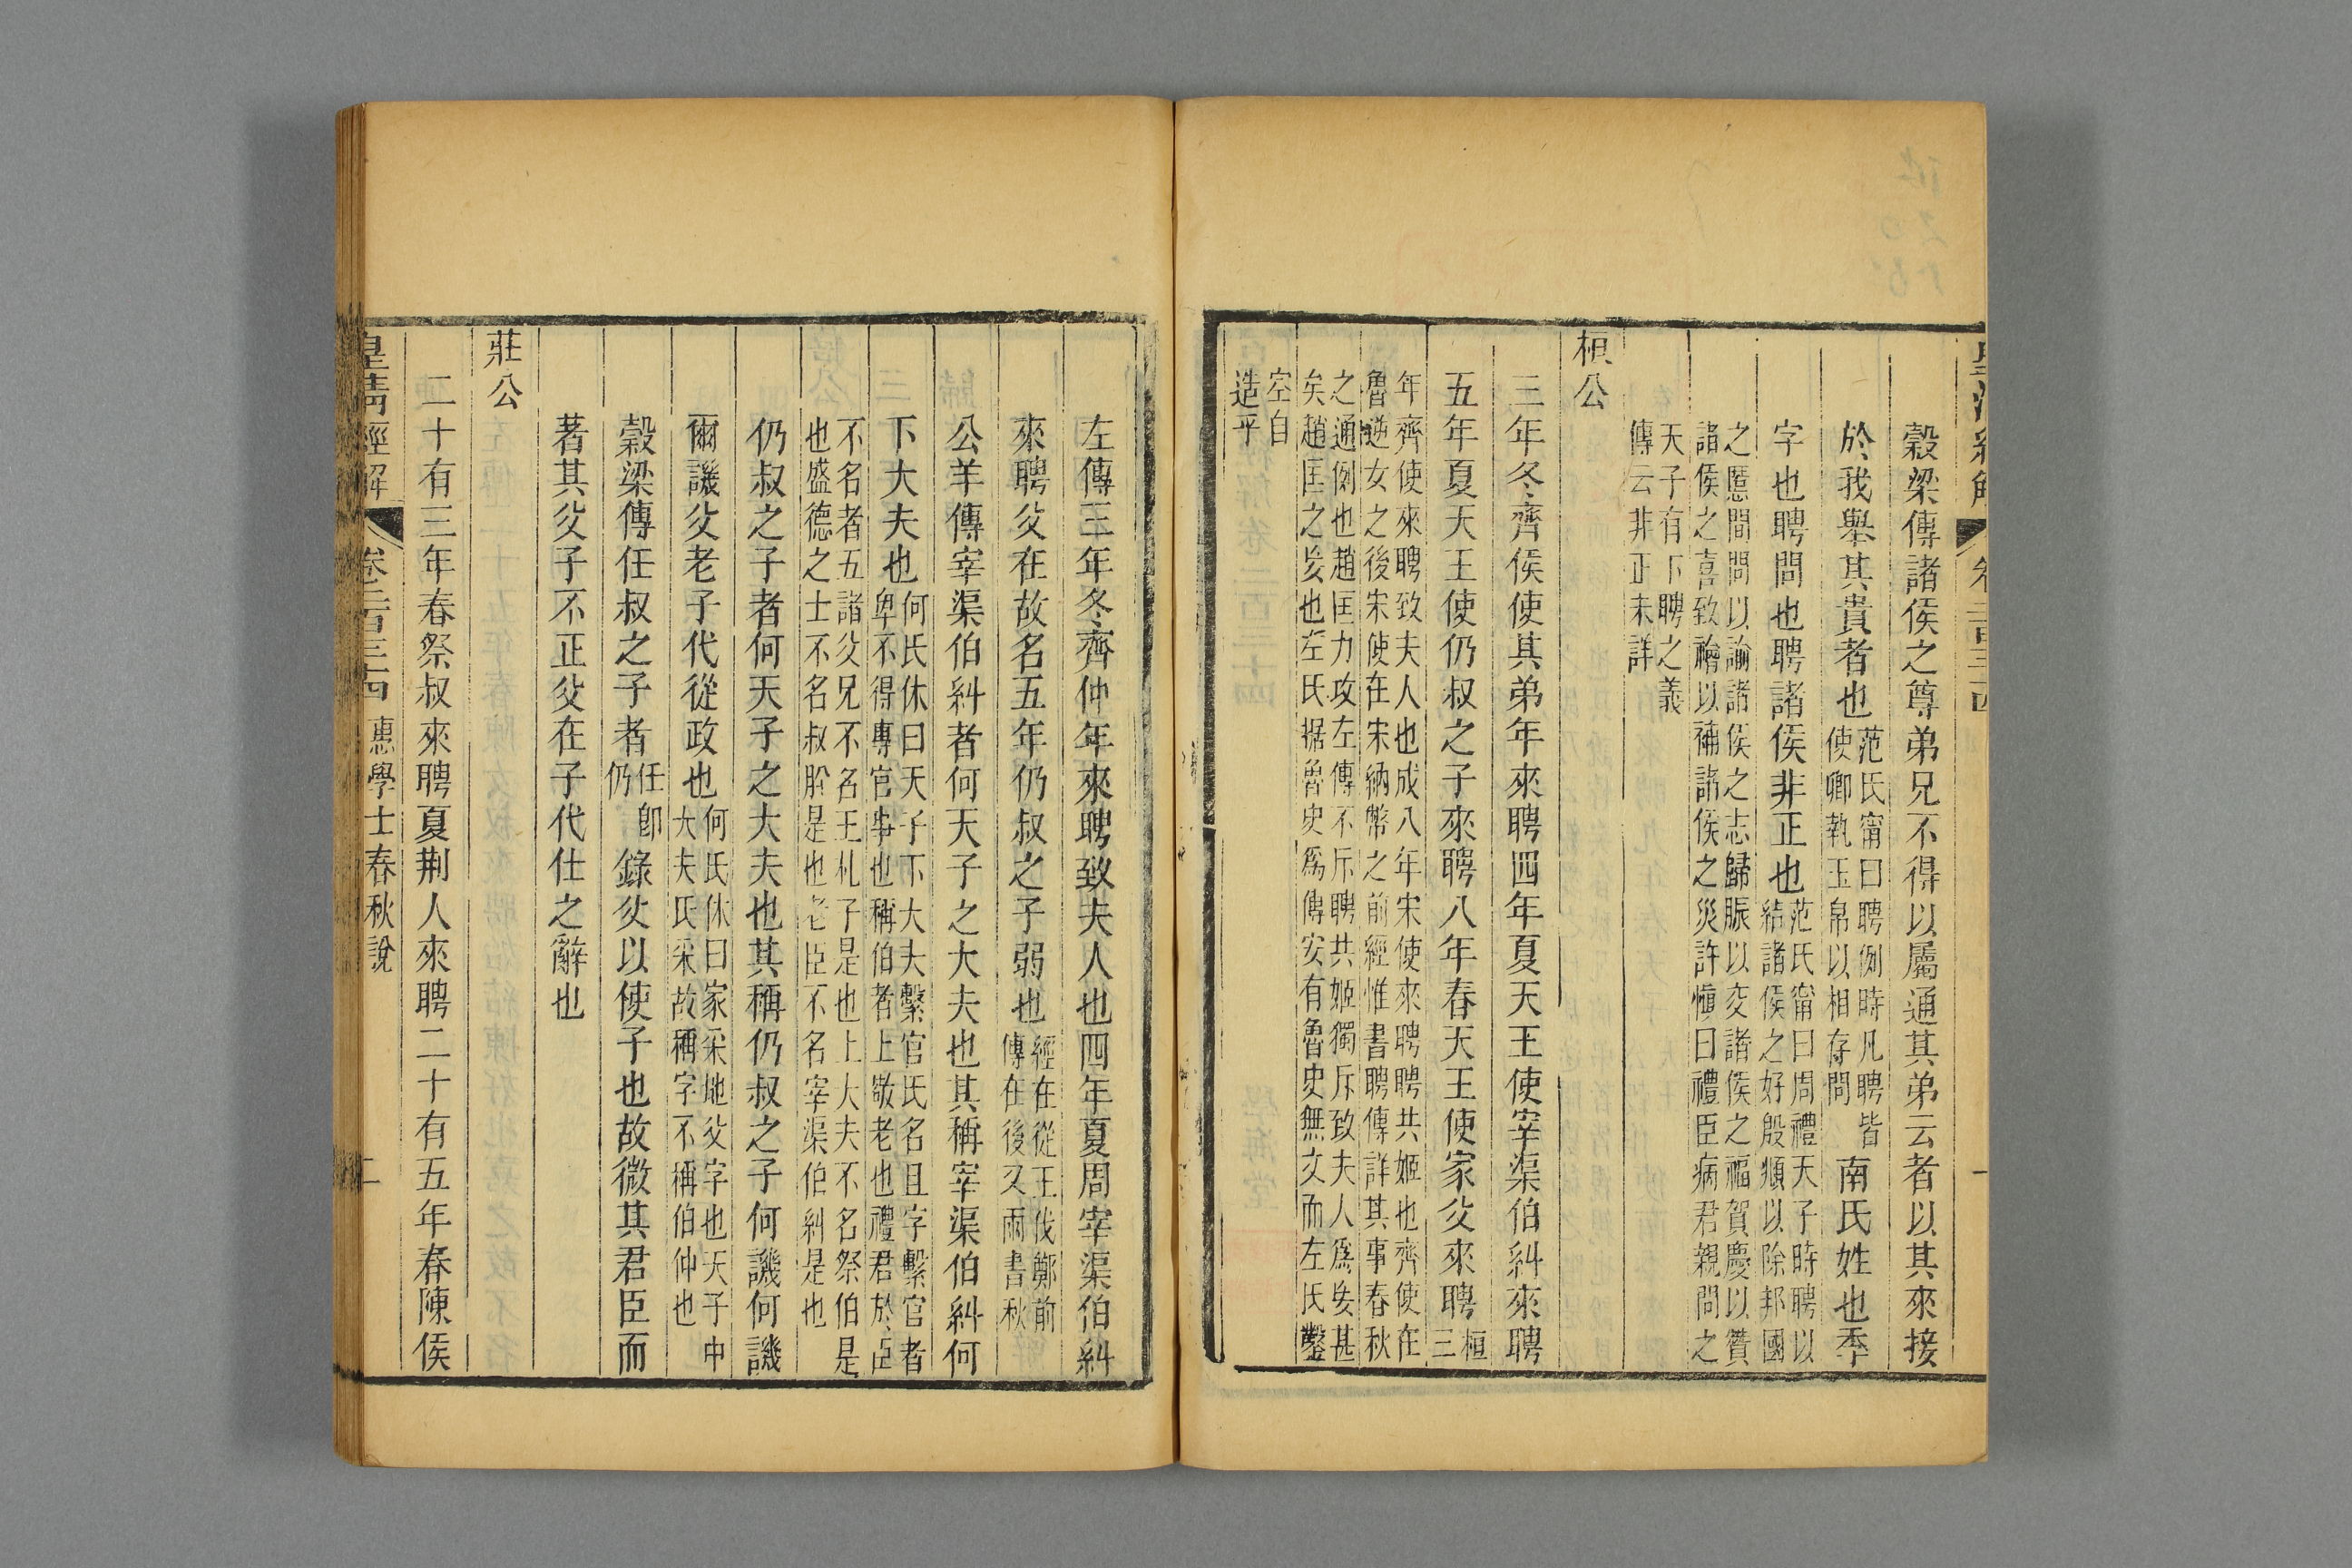 穀梁傳諸侯之尊弟兄不得以屬通其弟云者以其來接
於我舉其貴者也范氏甯曰聘例時凡聘皆使卿執玉帛以相存問南氏姓也季
字也聘問也聘諸侯非正也范氏甯曰周禮天子時聘以結諸侯之好殷頫以除邦國
之慝間問以諭諸侯之志歸脤以交諸侯之福賀慶以贊
諸侯之喜致襘以補諸侯之災許愼曰禮臣病君親問之
天子有下聘之義
傳云非正未詳
桓公
三年冬齊侯使其弟年來聘四年夏天王使宰渠伯糾來聘
五年夏天王使仍叔之子來聘八年春天王使家父來聘桓三
年齊使來聘致夫人也成八年宋使來聘聘共姬也齊使在
魯逆女之後宋使在宋納幣之前經惟書聘傳詳其事春秋
之通例也趙匡力攻左傳不斥聘共姬獨斥致夫人爲妄甚
矣趙匡之妄也左氏据魯史爲傳安有魯史無文而左氏鑿
空自
造乎
左傳三年冬齊仲年來聘致夫人也四年夏周宰渠伯糾
來聘父在故名五年仍叔之子弱也經在從王伐鄭前傳在後又雨書秋
公羊傳宰渠伯糾者何天子之大夫也其稱宰渠伯糾何
下大夫也何氏休曰天子下大夫繫官氏名且字繫官者卑不得專官事也稱伯者上敬老也禮君於臣
不名者五諸父兄不名王札子是也上大夫不名祭伯是
也盛德之士不名叔肸是也老臣不名宰渠伯糾是也
仍叔之子者何天子之大夫也其稱仍叔之子何譏何譏
爾譏父老子代從政也何氏休曰家采地父字也天子中大夫氏采故稱字不稱伯仲也
穀梁傳任叔之子者任卽仍錄父以使子也故微其君臣而
著其父子不正父在子代仕之辭也
莊公
二十有三年春祭叔來聘夏荆人來聘二十有五年春陳侯
皇清經解 卷二百三十四 惠學士春秋說 二